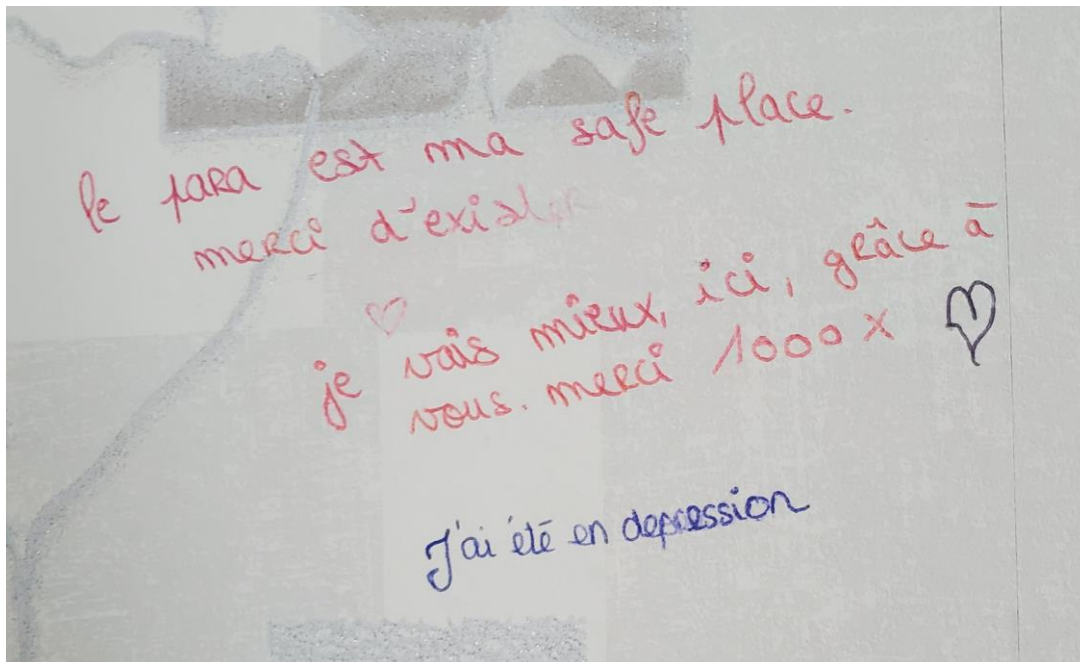 le para est ma safe place.
merci d'exister
je vais mieux, ici, grâce à
vous. merci 1000 x
J'ai été en depression